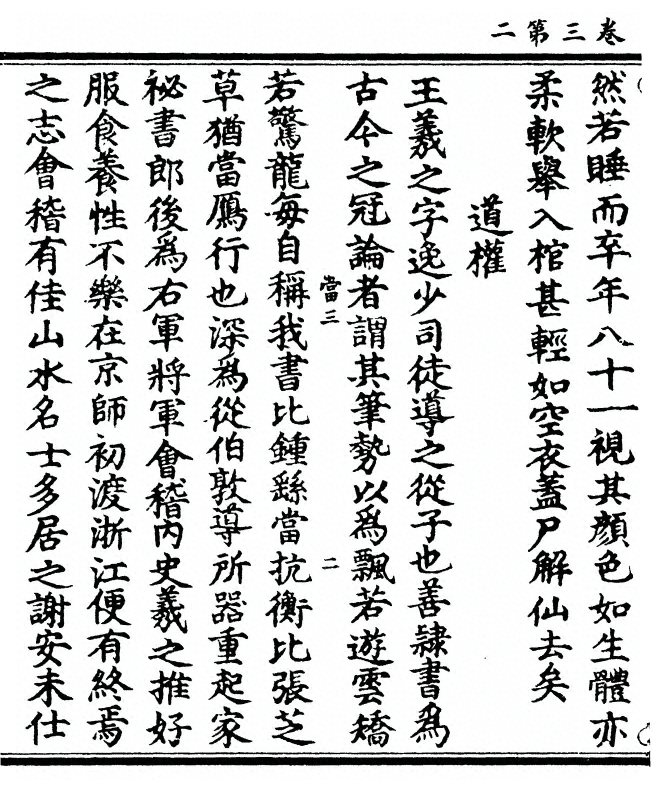 卷三第二
然若睡而卒年八十一視其顔色如生體亦
柔軟舉入棺甚輕如空衣蓋尸解仙去矣
道權
王羲之字逸少司徒導之從子也善隷書爲
古今之冠論者謂其筆勢以爲飄若遊雲矯
當三
二
若驚龍每自稱我書比鍾繇當抗衡比張芝
草猶當鴈行也深爲從伯敦導所器重起家
祕書郎後爲右軍將軍會稽内史羲之推好
服食養性不樂在京師初渡浙江便有終焉
之志會稽有佳山水名士多居之謝安未仕